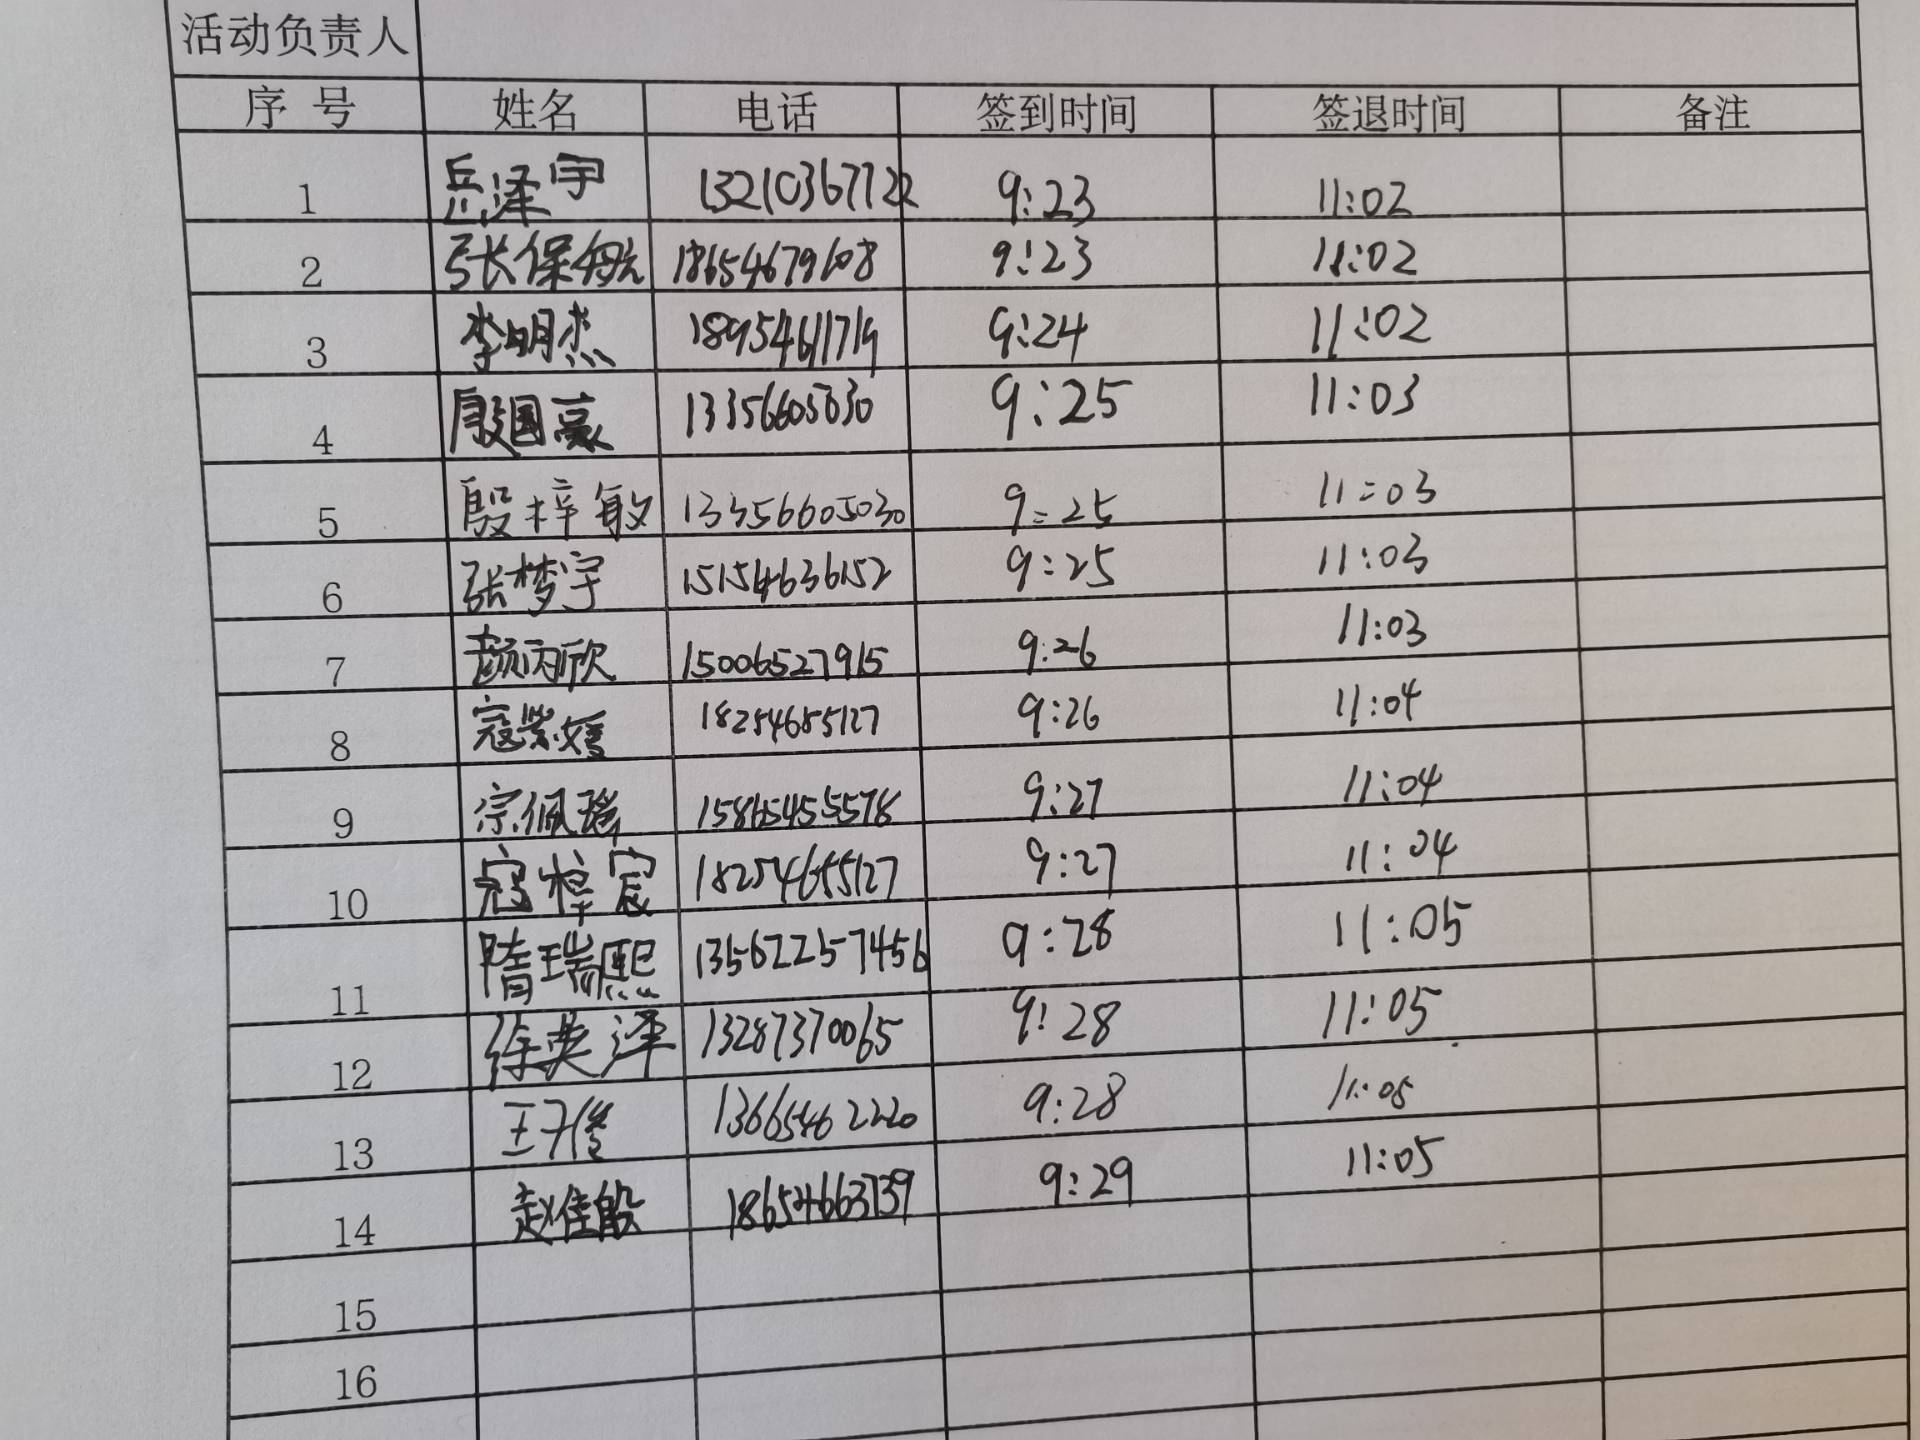 活动负责人
序 号 姓名 电话 签到时间 签退时间 备注
1 岳泽宇 13210367722 9:23 11:02
2 张保航 18654679608 9:23 11:02
3 李明杰 18954611719 9:24 11:02
4 殷国豪 13356605030 9:25 11:03
5 殷梓敏 13356605030 9:25 11:03
6 张梦宇 15154636152 9:25 11:03
7 颜丙欣 15006527915 9:26 11:03
8 寇紫媛 18254655127 9:26 11:04
9 宗佩瑶 15865455578 9:27 11:04
10 寇梓宸 18254655127 9:27 11:04
11 隋瑞熙 13562257456 9:28 11:05
12 徐英泽 13287370065 9:28 11:05
13 王子俊 13665462220 9:28 11:05
14 赵佳殷 18654663739 9:29 11:05
15
16